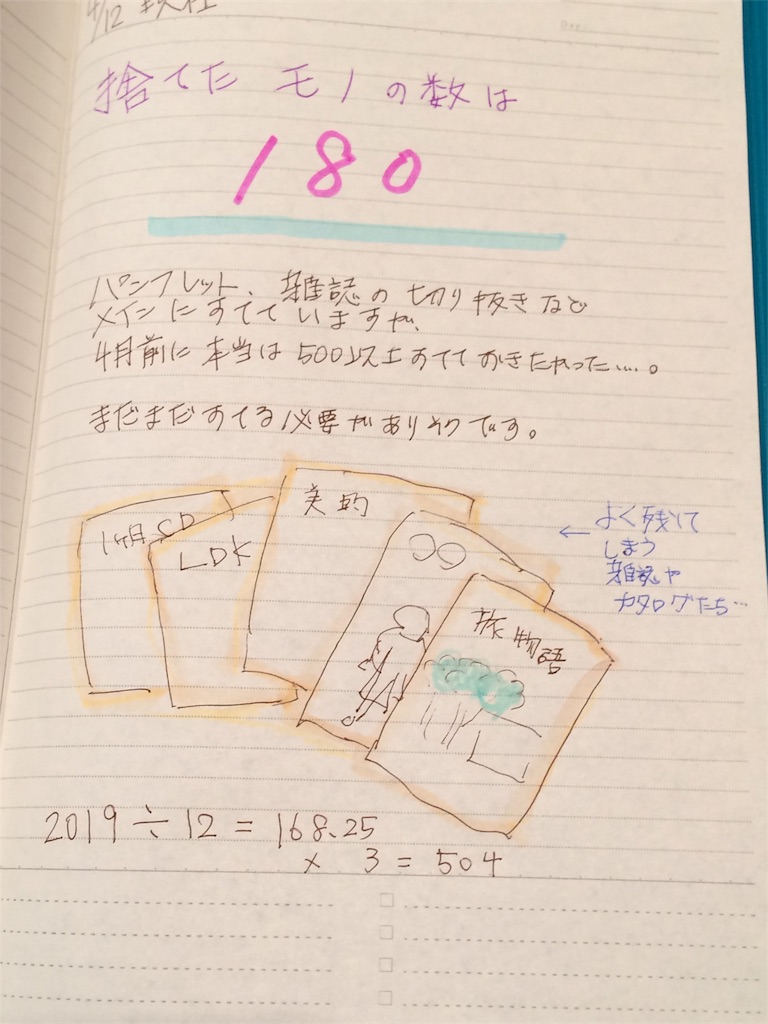 4/12 現在
捨てた モノの数は
180
パンフレット、雑誌の切り抜きなど
メインにすてていますが、
4月前に本当は500以上すてておきたかった....。
まだまだすてる必要がありそうです。
1ヶ月CD
LDK
美的
旅物語
← よく残して
しまう
雑誌や
カタログたち…
2019÷12=168.25
× 3=504